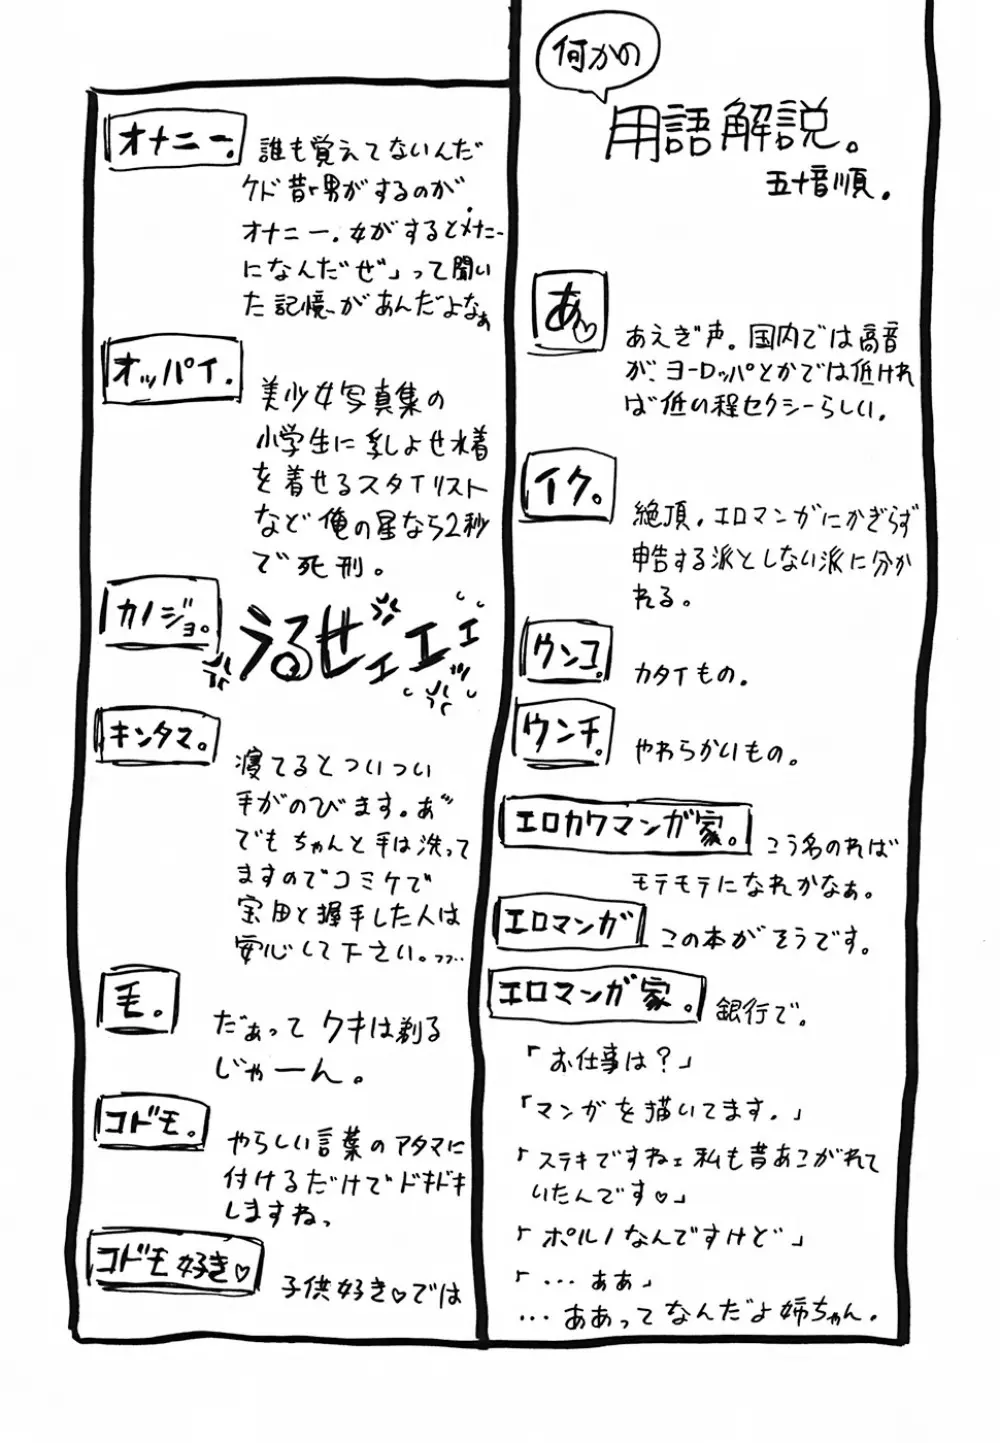 何かの
用語解説。
五十音順。
あ♡
あえぎ声。国内では高音
が、ヨーロッパとかでは低けれ
ば低の程セクシーらしい。
イク。
絶頂。エロマンガにかぎらず
申告する派としない派に分か
れる。
ウンコ。
カタイもの。
ウンチ。
やわらかいもの。
エロカワマンガ家。
こう名のれば
モテモテになれかなぁ。
エロマンガ
この本がそうです。
エロマンガ家。
銀行で。
「お仕事は?」
「マンガを描いてます。」
「ステキですねェ私も昔あこがれて
いたんです♡」
「ポルノなんですけど」
「…ああ」
…ああってなんだよ姉ちゃん。
オナニー。
誰も覚えてないんだ
ケド昔「男がするのが、
オナニー。女がするとメナニー
になんだぜ」って聞い
た記憶があんだよなぁ
オッパイ。
美少女写真集の
小学生に乳よせ水着
を着せるスタイリスト
など俺の星なら2秒
で死刑。
カノジョ。
うるせェエェ
キンタマ。
寝てるとついつい
手がのびます。あ゛
でもちゃんと手は洗って
ますのでコミケで
宝田と握手した人は
安心して下さい。フフ…
毛。
だぁってクキは剃る
じゃーん。
コドモ。
やらしい言葉のアタマに
付けるだけでドキドキ
しますねっ
コドモ好き♡
子供好き♡では